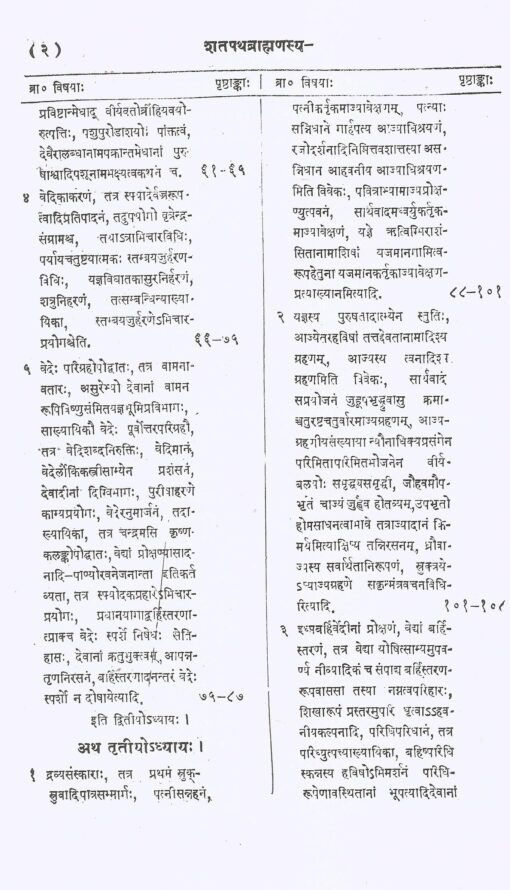 (२)
शतपथब्राह्मणस्य-
ब्रा० विषयाः पृष्ठाङ्काः
प्रविष्टान्मेधाद् वीर्यवतोर्व्रीहियवयो-
रुत्पत्तिः, पशुपुरोडाशयोः पांक्तत्वं,
देवैरालब्धानामपक्रान्तमेधानां पुरु-
षाश्वादिपशूनामभक्ष्यत्वकथनं च. ६१-६५
४ वेदिकाकरणं, तत्र स्फ्यादेर्वज्ररूप-
त्वादिप्रतिपादनं, तदुपयोगो वृत्रेन्द्र-
संग्रामश्च, तथाऽत्राभिचारविधिः,
पर्यायचतुष्टयात्मकः स्तम्बयजुर्हरण-
विधिः, यज्ञविघातकासुरनिर्हरणं,
शत्रुनिहरणं, तत्सम्बन्धिन्याख्या-
यिका, स्तम्बयजुर्हरणेऽभिचार-
प्रयोगश्चेति. ६६-७५
५ वेदेः परिग्रहोपोद्घातः, तत्र वामना-
वतारः, असुरेभ्यो देवानां वामन
रूपिविष्णुसंमितयज्ञभूमिप्रविभागः,
साख्यायिकौ वेदेः पूर्वोत्तरपरिग्रहौ,
तत्र वेदिशब्दनिरुक्तिः, वेदिमानं,
वेदेर्लौकिकस्त्रीसाम्येन प्रशंसनं,
देवादीनां दिग्विभागः, पुरीषाहरणे
काम्यप्रयोगः, वेदेरनुमार्जनं, तदा-
ख्यायिका, तत्र चन्द्रमसि कृष्ण-
कलङ्कोपोद्घातः, वेद्यां प्रोक्षण्यासाद-
नादि-पाण्योरवनेजनान्ता इतिकर्त
व्यता, तत्र स्फ्योदकप्रहारेऽभिचार-
प्रयोगः, प्रधानयागाद्बर्हिस्तरणा-
त्प्राक्च वेदेः स्पर्शे निषेधः सेति-
हासः, देवानां क्रतुभुक्त्वम्, आपन्न-
तृणनिरसनं, बर्हिस्तरणादनन्तरं वेदेः
स्पर्शो न दोषायेत्यादि. ७५-८७
इति द्वितीयोऽध्यायः।
अथ तृतीयोऽध्यायः।
१ द्रव्यसंस्काराः, तत्र प्रथमं स्रुक्-
स्रुवादिपात्रसम्मार्गः, पत्नीसन्नहनं,
ब्रा० विषयाः पृष्ठाङ्काः
पत्नीकर्तृकमाज्यावेक्षणम्, पत्न्याः
सन्निधाने गार्हपत्य आज्याधिश्रयणं,
रजोदर्शनादिनिमित्तवशात्तस्या अस-
न्निधान आहवनीय आज्याधिश्रयण-
मिति विवेकः, पवित्राभ्यामाज्यप्रोक्ष-
ण्युत्पवनं, सार्थवादमध्वर्युकर्तृक-
माज्यावेक्षणं, यज्ञे ऋत्विग्भिराशं-
सितानामाशिषां यजमानगामित्व-
रूपहेतुना यजमानकर्तृकाज्यावेक्षण-
प्रत्याख्यानमित्यादि. ८८-१०१
२ यज्ञस्य पुरुषतादात्म्येन स्तुतिः,
आज्येतरहविषां तत्तद्देवतानामादिश्य
ग्रहणम्, आज्यस्य त्वनादिश्य
ग्रहणमिति विवेकः, सार्थवादं
सप्रयोजनं जुहूपभृद्ध्रुवासु क्रमा-
च्चतुरष्टचतुर्वारमाज्यग्रहणम्, आज्य-
ग्रहणीयसंख्याया न्यौनाधिक्यप्रसंगेन
परिमितापरिमितभोजनेन वीर्य-
बलयोः समृद्ध्यसमृद्धी, जौहवमौप-
भृतं चाज्यं जुह्वैव होतव्यम्, उपभृतो
होमसाधनत्वाभावे तत्राज्यादानं कि-
मर्थमित्याक्षिप्य तन्निरसनम्, ध्रौवा-
ज्यस्य सर्वार्थतानिरूपणं, स्रुक्त्रये-
ऽप्याज्यग्रहणे सकृन्मंत्रवचनविधि-
रित्यादि. १०१-१०८
३ इध्मबर्हिर्वेदीनां प्रोक्षणं, वेद्यां बर्हि-
स्तरणं, तत्र वेद्या योषित्साम्यमुपव-
र्ण्य नीव्यादिकं च संपाद्य बर्हिस्तरण-
रूपवाससा तस्या नग्नत्वपरिहारः,
शिखारूपं प्रस्तरमुपरि धृत्वाऽऽहव-
नीयकल्पनादि, परिधिपरिधानं, तत्र
परिध्युत्पत्त्याख्यायिका, बहिष्परिधि
स्कन्नस्य हविषोऽभिमर्शनं परिधि-
रूपेणावस्थितानां भूपत्यादिदेवानां